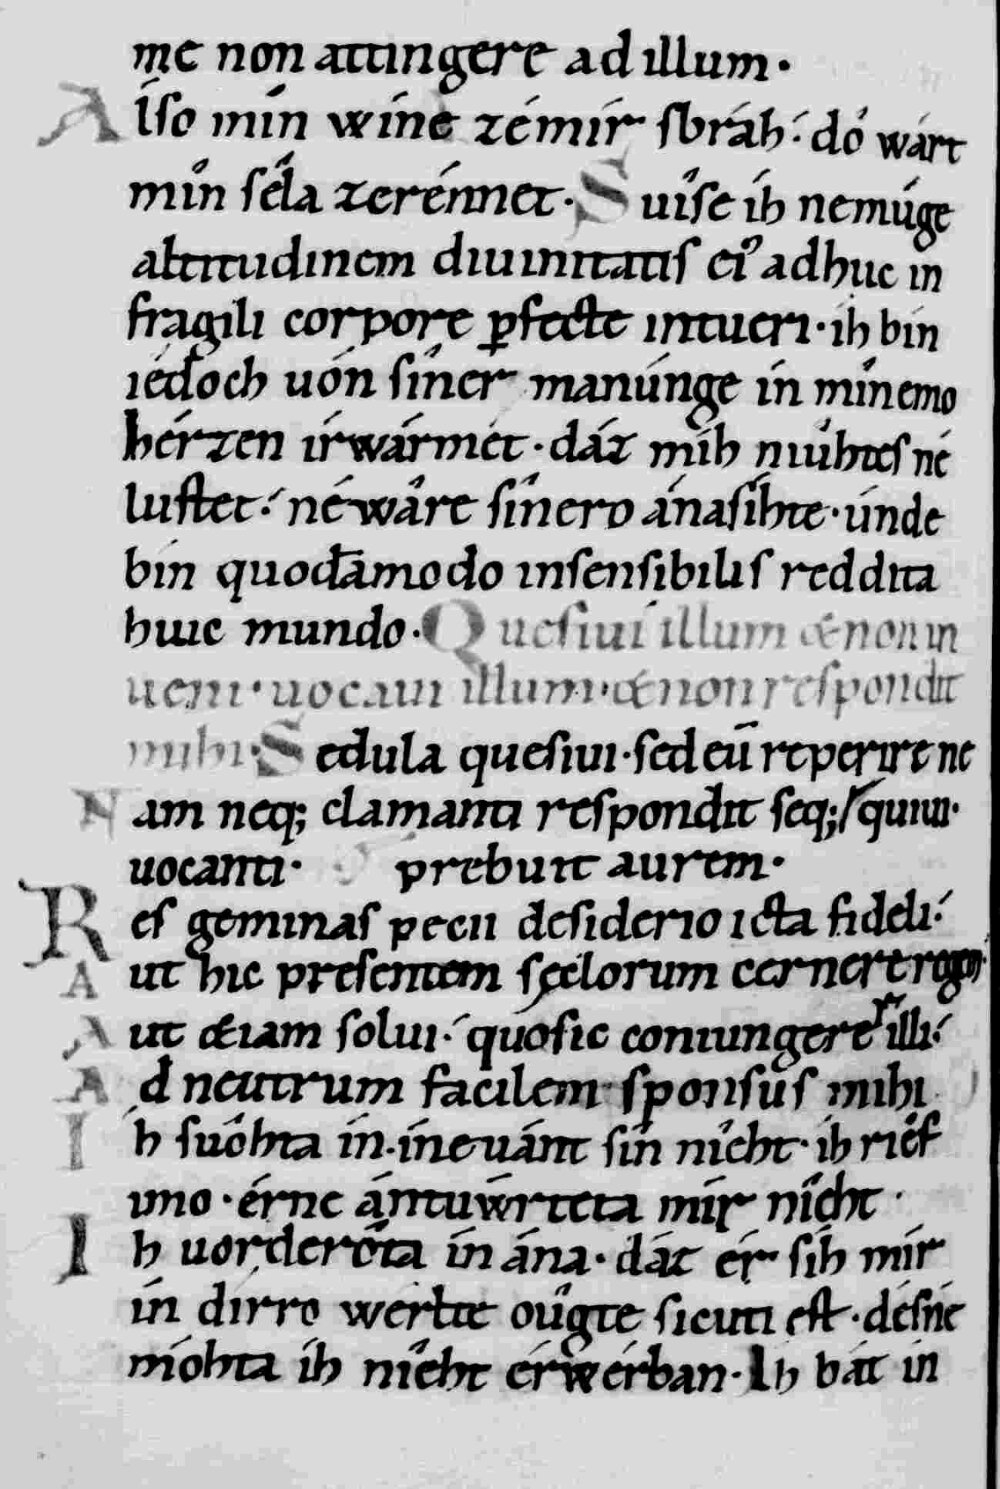 me non attingere ad illum·
Alſo mín wíne zémír ſbráh· dó wárt
mîn ſêla zerénnet· Suîſe ih nemúge
altitudinem diuinitatiſ ei⁹ adhuc in
fragili corpore ꝑfecte intueri· ih bin
iédoch uón ſîner manúnge ín mînemo
hérzen írwármet· dáz míh niûhteſ né
luſtet· néwâre ſînero ánaſíhte· únde
bín quodāmodo inſenſibiliſ reddita
huic mundo· Queſiui illum & non in
ueni· uocaui illum· & non reſpondit
mihi· Sedula queſiui· ſed eū reperire ne
Nam neq; clamanti reſpondit ſeq; / quiui·
uocanti· prebuit aurem·
Reſ geminaſ pecii deſiderio icta fideli·
Aut hic preſentem ſeclorum cernere regem·
Aut &iam ſolui· quo ſic coniungerer illi·
Ad neutrum facilem ſponſuſ mihi
Ih ſuôhta ín· íne uánt ſín nîeht· íh riêf
imo· érne ántuẃrteta mír nîeht·
Ih uorderôta ín ána· dáz ér ſíh mír
ín dírro werlte oûgte ſicuti eſt· déſné
móhta íh nîeht érwérban· Ih bát ín